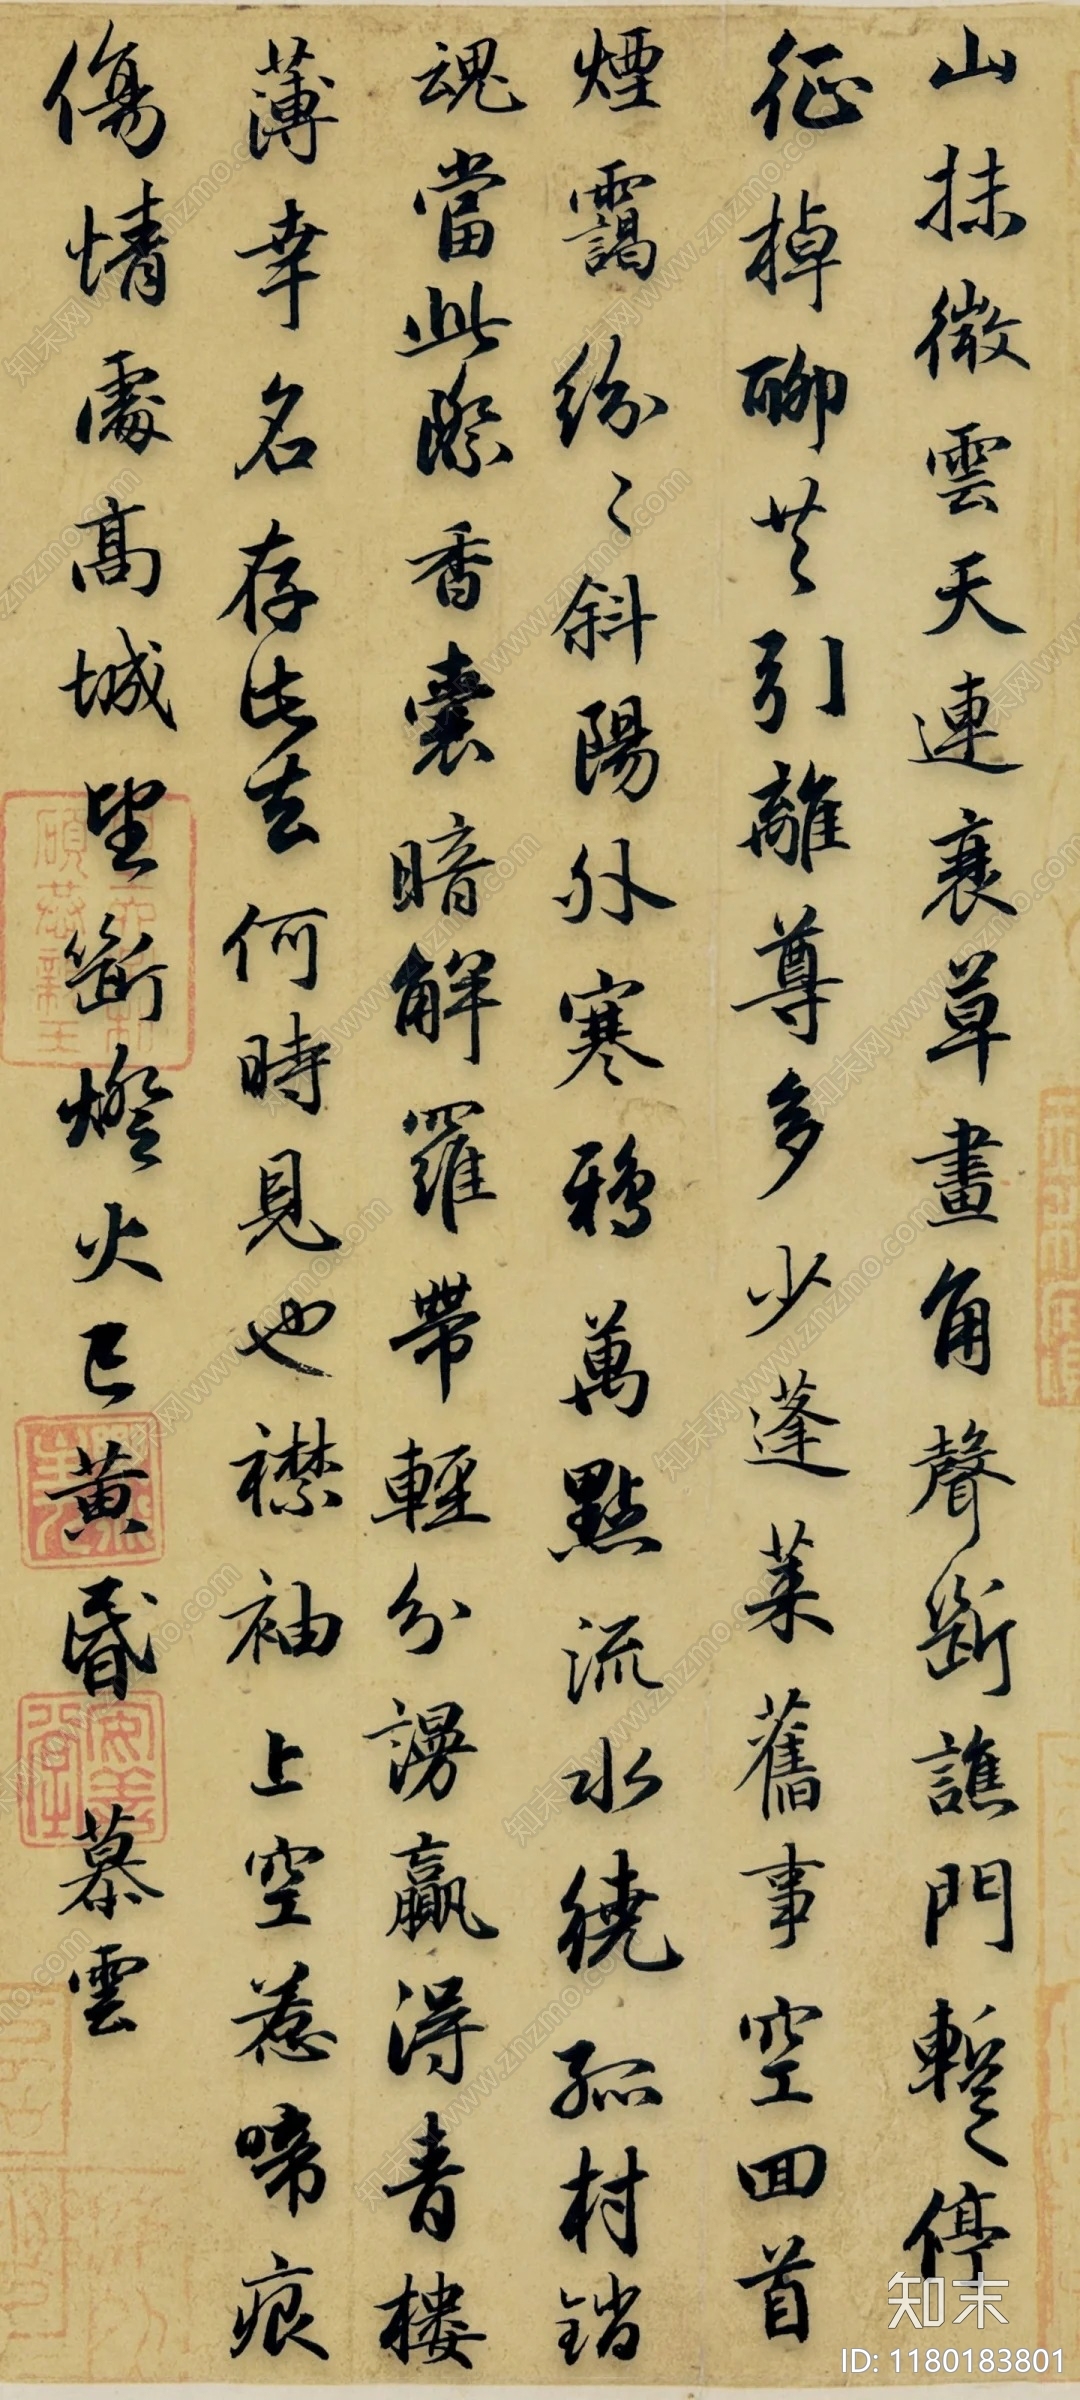 山抹微雲天連衰草畫角聲斷譙門暫停
征棹聊共引離尊多少蓬萊舊事空回首
煙靄紛〻斜陽外寒鴉萬點流水繞孤村銷
魂當此際香囊暗解羅帶輕分謾贏得青樓
薄幸名存此去何時見也襟袖上空惹啼痕
傷情處高城望斷燈火已黃昏慕雲
知末
ID: 1180183801
知末网www.znzmo.com